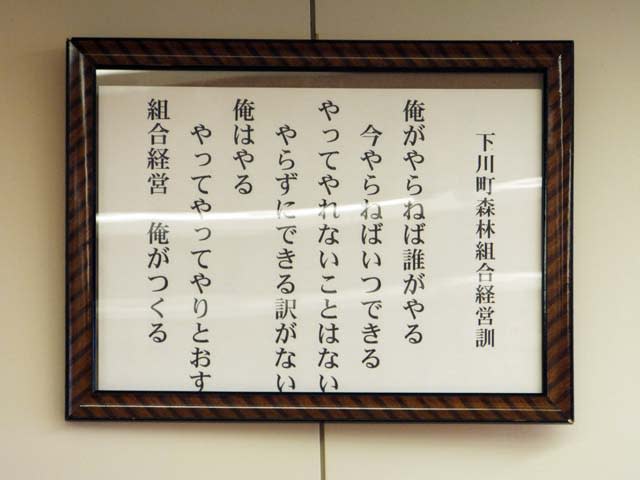 下川町森林組合経営訓
俺がやらねば誰がやる
今やらねばいつできる
やってやれないことはない
やらずにできる訳がない
俺はやる
やってやってやりとおす
組合経営　俺がつくる